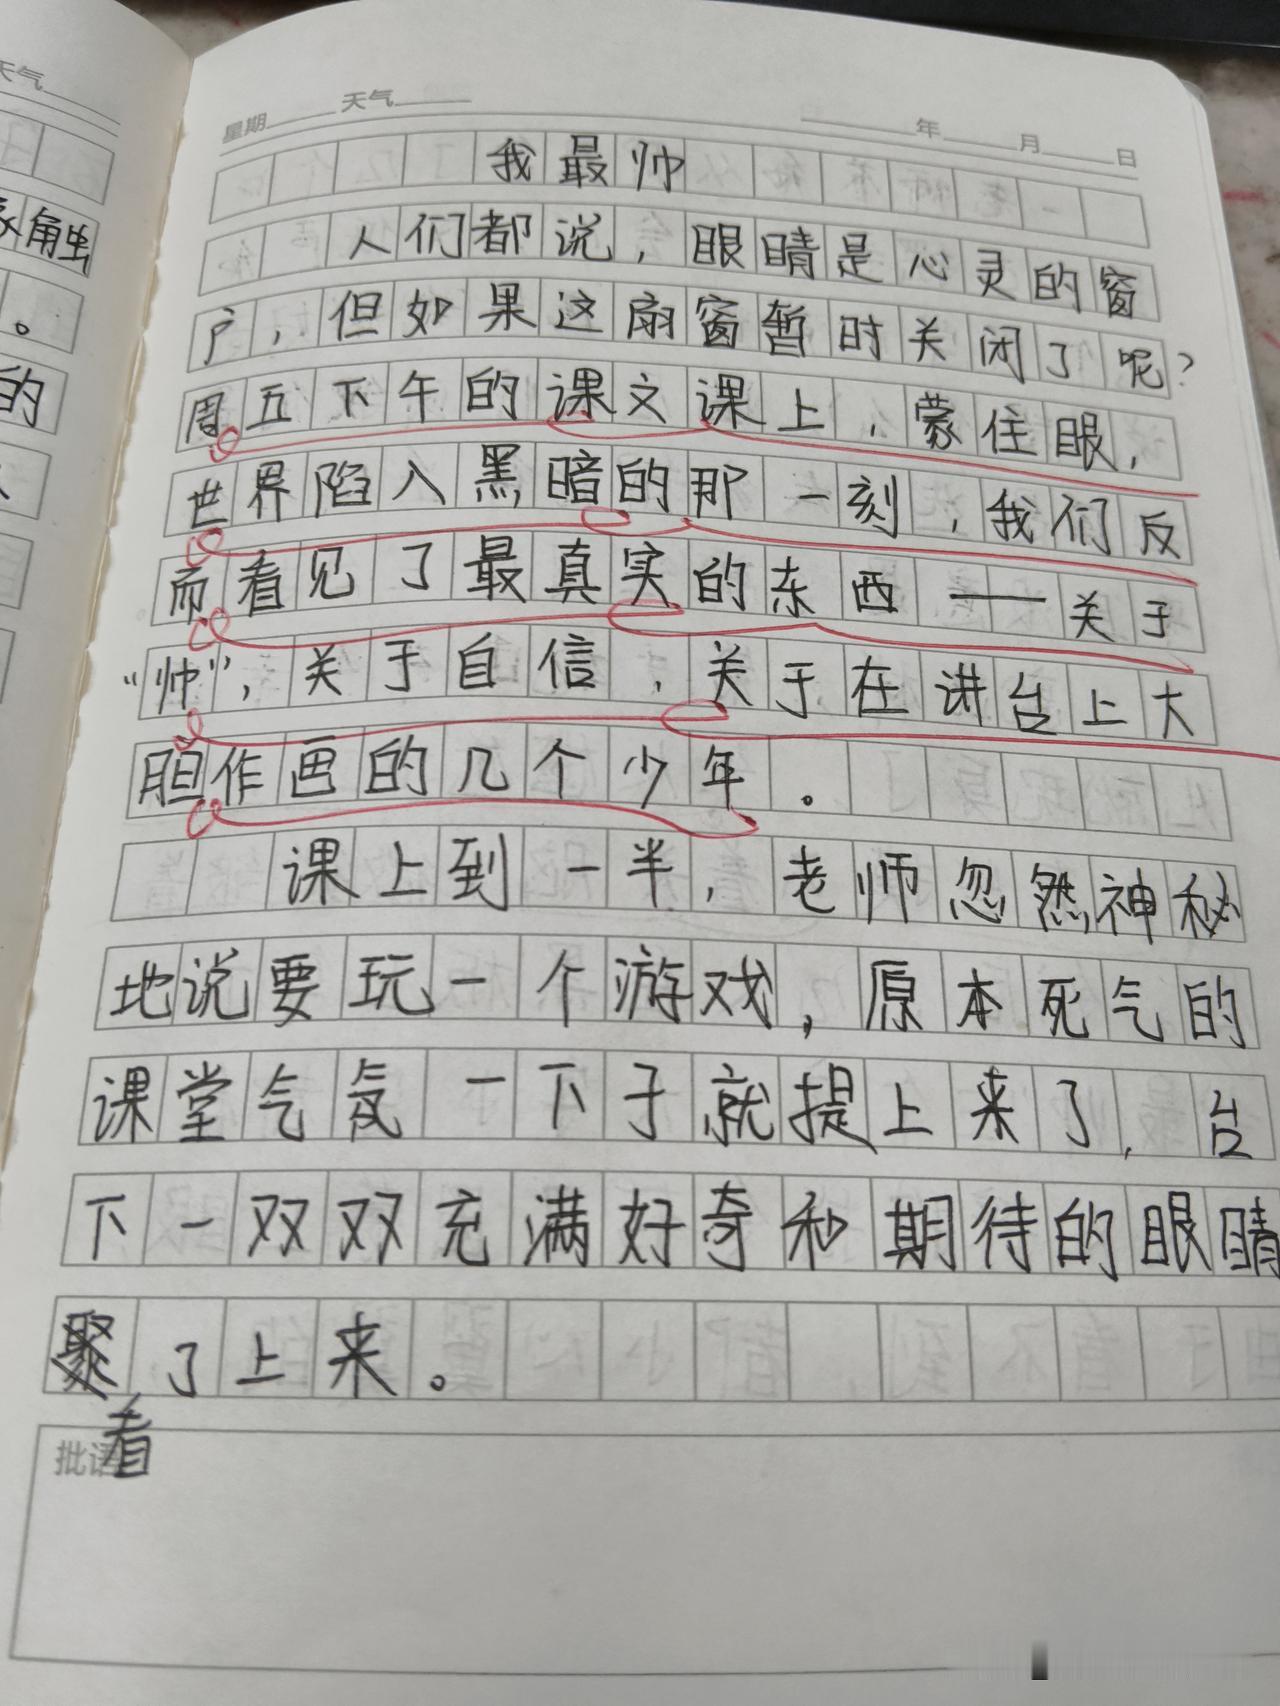 天气
触
。
的
星期 天气 年 月 日
我最帅
人们都说，眼睛是心灵的窗
户，但如果这扇窗暂时关闭了呢？
周五下午的课文课上，蒙住眼，
世界陷入黑暗的那一刻，我们反
而看见了最真实的东西——关于
“帅”，关于自信，关于在讲台上大
胆作画的几个少年。
课上到一半，老师忽然神秘
地说要玩一个游戏，原本死气的
课堂气氛一下子就提上来了，台
下一双双充满好奇和期待的眼睛
聚了上来。
看
批语